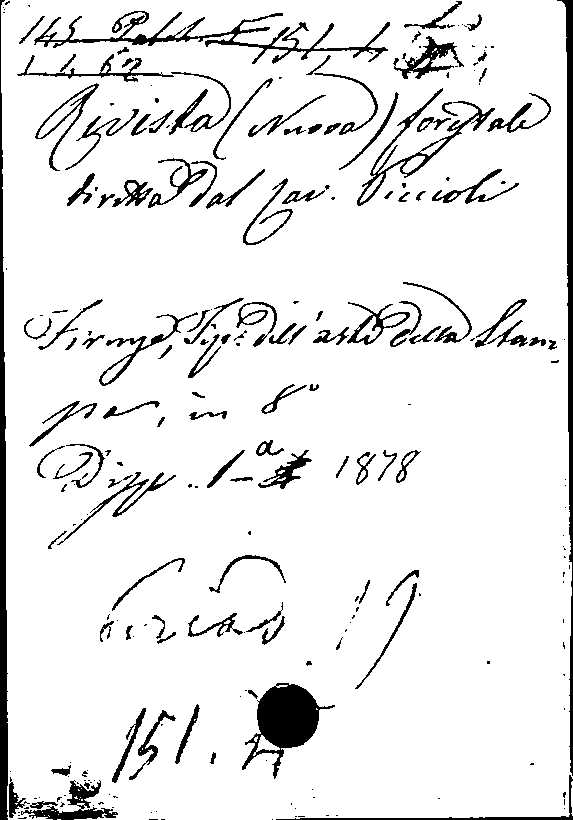 143 Palch. 5 151, 4,
1. 1. 52
Rivista (Nuova) forestale
diretta dal Cav. Piccioli
Firenze, Tip: dell'arte della Stam-
pa, in 8°
Disp. 1-a 1878
Period. 19
151. 4